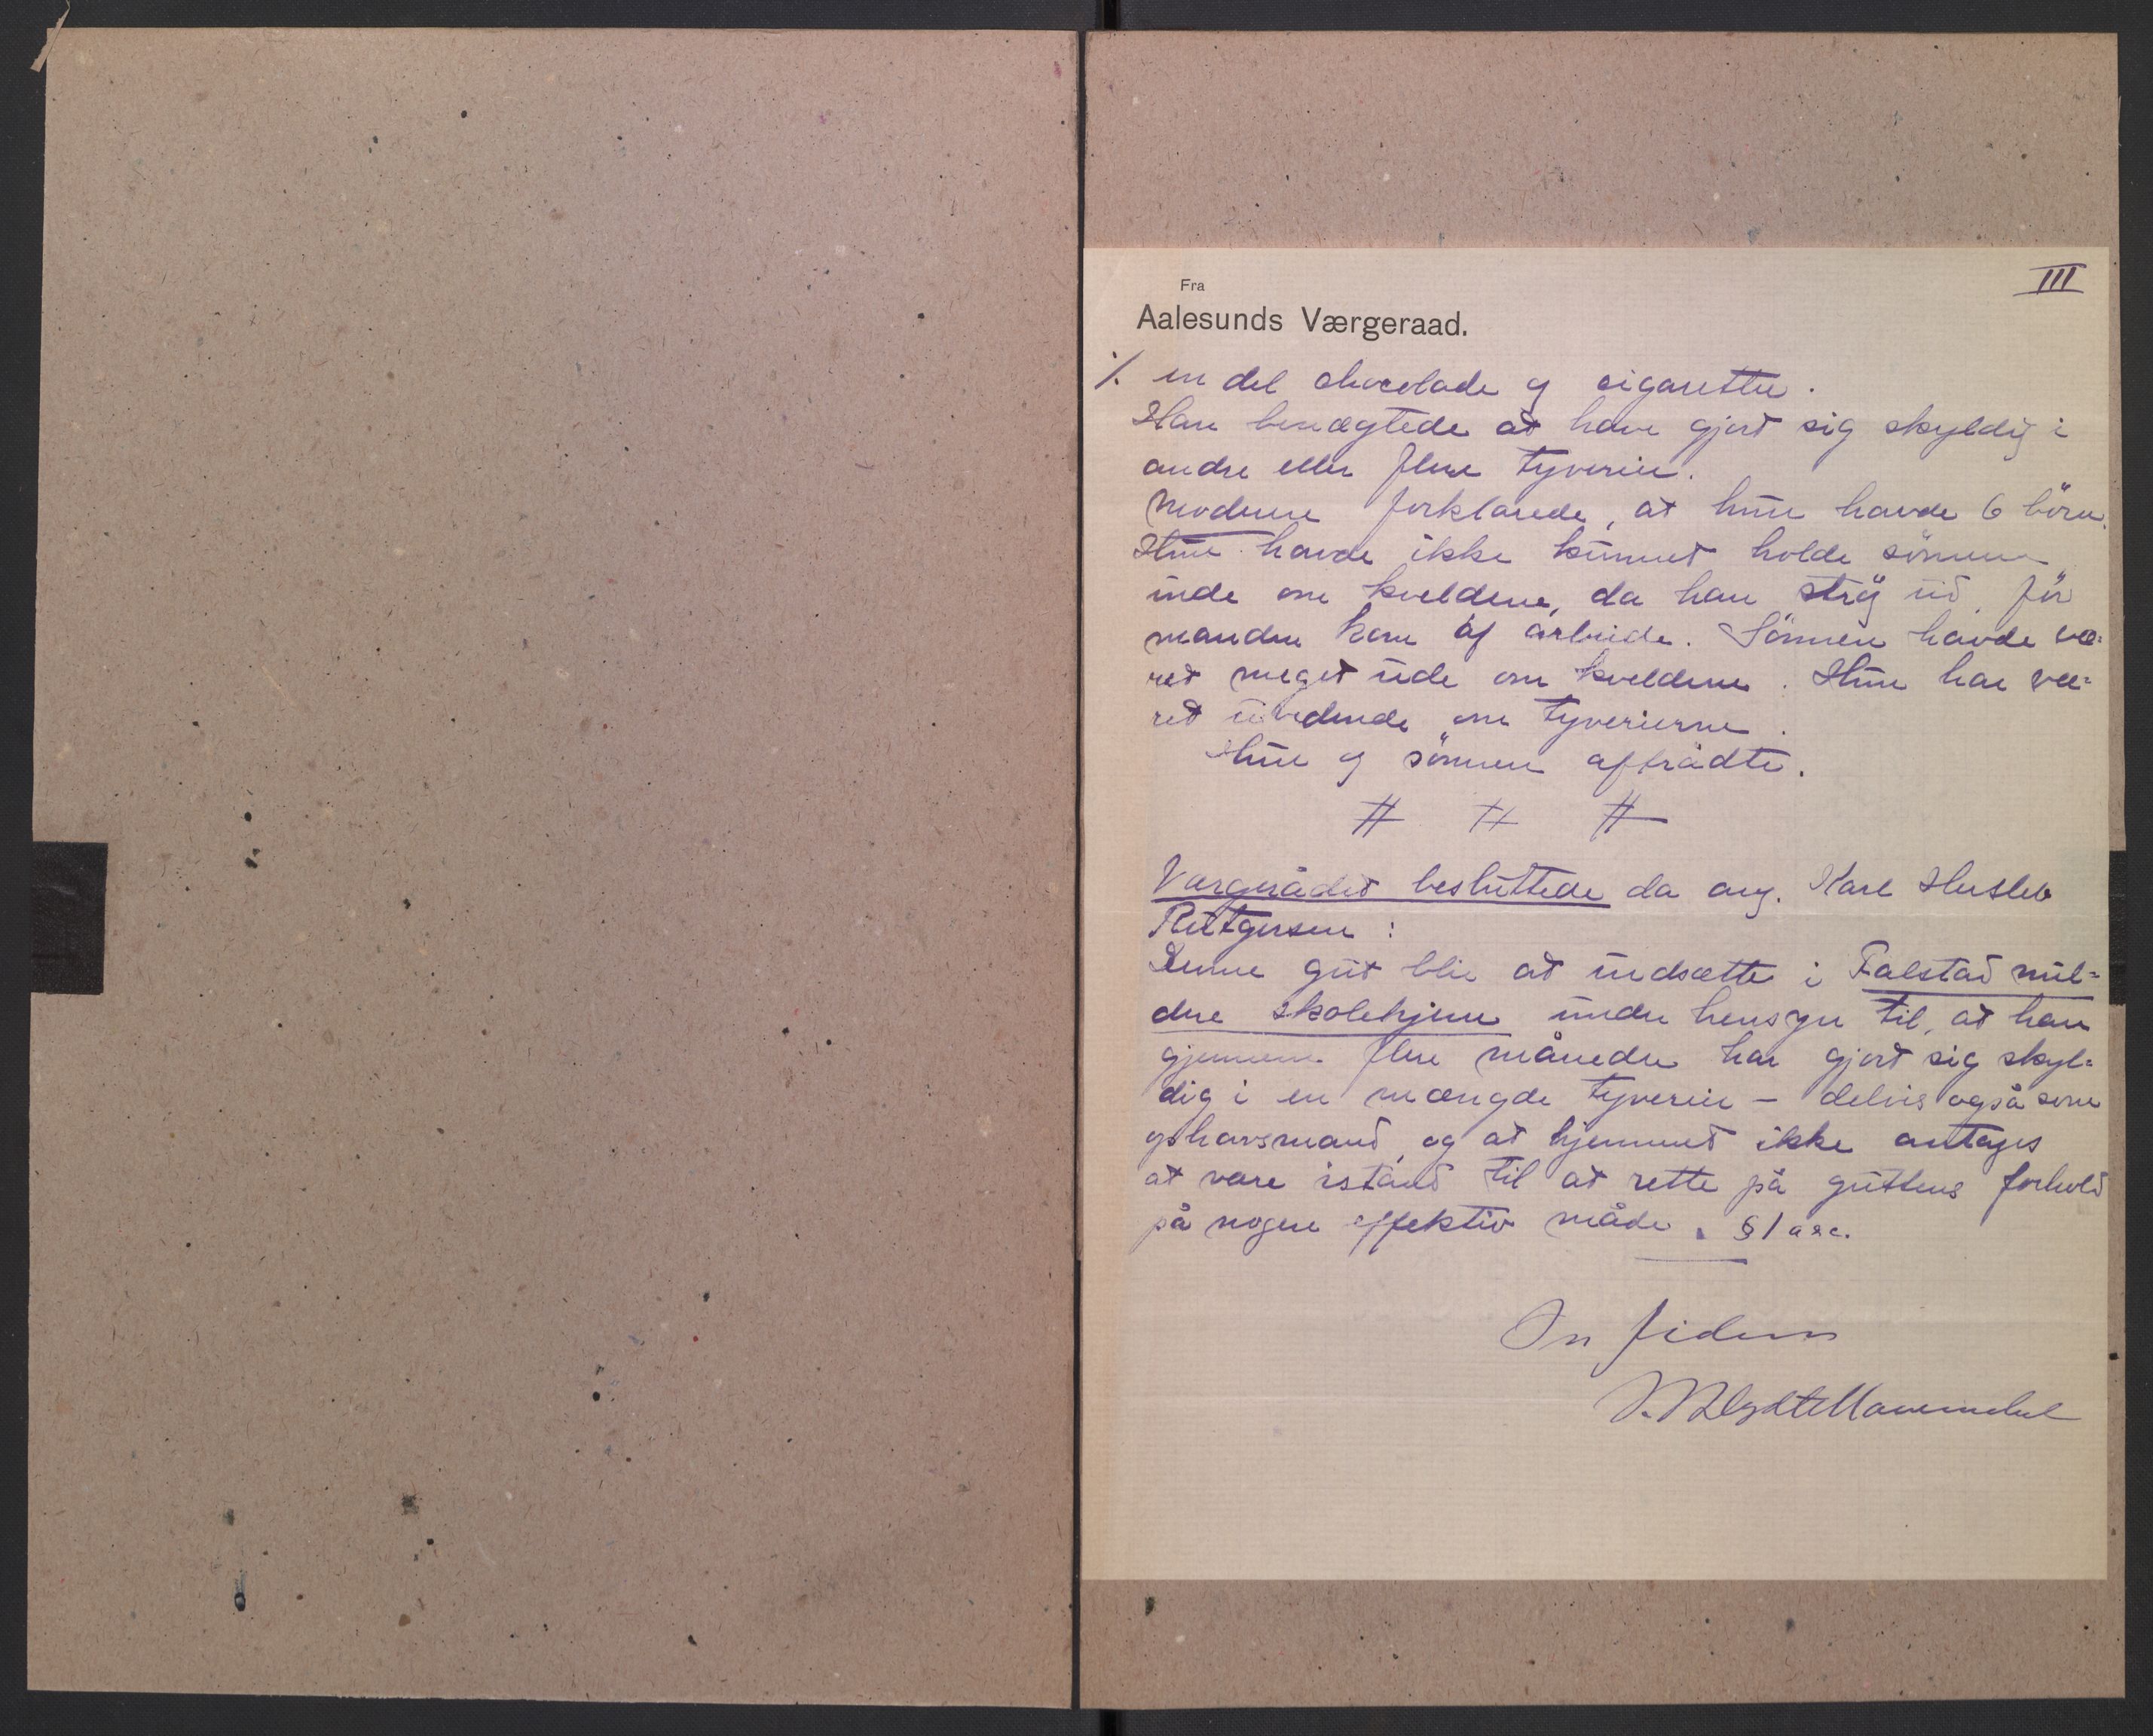 III
Fra
Aalesunds Værgeraad.
⁒ en del chocolade og cigaretter.
Han benægtede at have gjort sig skyldig i
andre eller flere tyverier.
Moderen forklarede, at hun havde 6 börn.
Hun havde ikke kunnet holde sönnen
inde om kveldene, da han strög ud, för
manden kom af arbeide. Sönnen havde væ=
ret meget ude om kveldene. Hun har væ=
ret uvidende om tyverierne.
Hun og sönnen aftrådte.
# # #
Værgerådet besluttede da ang. Karl
Rutgersen :
Denne gut blir at indsætte i Falstad mil=
dere skolehjem under hensyn til, at han
gjennem flere måneder har gjort sig skyl=
dig i en mængde tyverier – delvis også som
ophavsmand, og at hjemmet ikke antages
at være istand til at rette på guttens forhold
på nogen effektiv måde. § 1 a & c.
In fidem